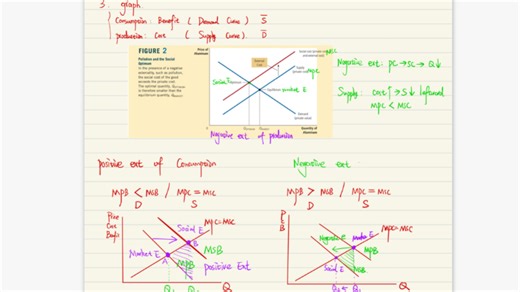 3. graph
Consumption: Benefit ( Demand Curve ) S̄
production: Cost ( Supply Curve ) D̄
FIGURE 2
Pollution and the Social Optimum
In the presence of a negative
externality, such as pollution,
the social cost of the good
exceeds the private cost.
The optimal quantity, Qoptimum,
is therefore smaller than the
equilibrium quantity, Qmarket.
Price of
Aluminum
MSC
Supply
(private cost)
MPC
Social E
Equilibrium
market E
Optimum
Demand
(private value)
0
Quantity of
Aluminum
Negative ext of production
Negative ext: PC → SC → Q↓
Supply: cost↑ → S↓ leftward
MPC < MSC
positive ext of Consumption
Negative ext
MPB < MSB / MPC = MSC
D S
MPB > MSB / MPC = MSC
D S
Price
Cost
Benefit
Social E
MPC=MSC
Market E
B
A
MSB
MPB
positive Ext
Q
P
C
B
Negative
Market E
MPC=MSC
MPB
Social E
MSB
Q